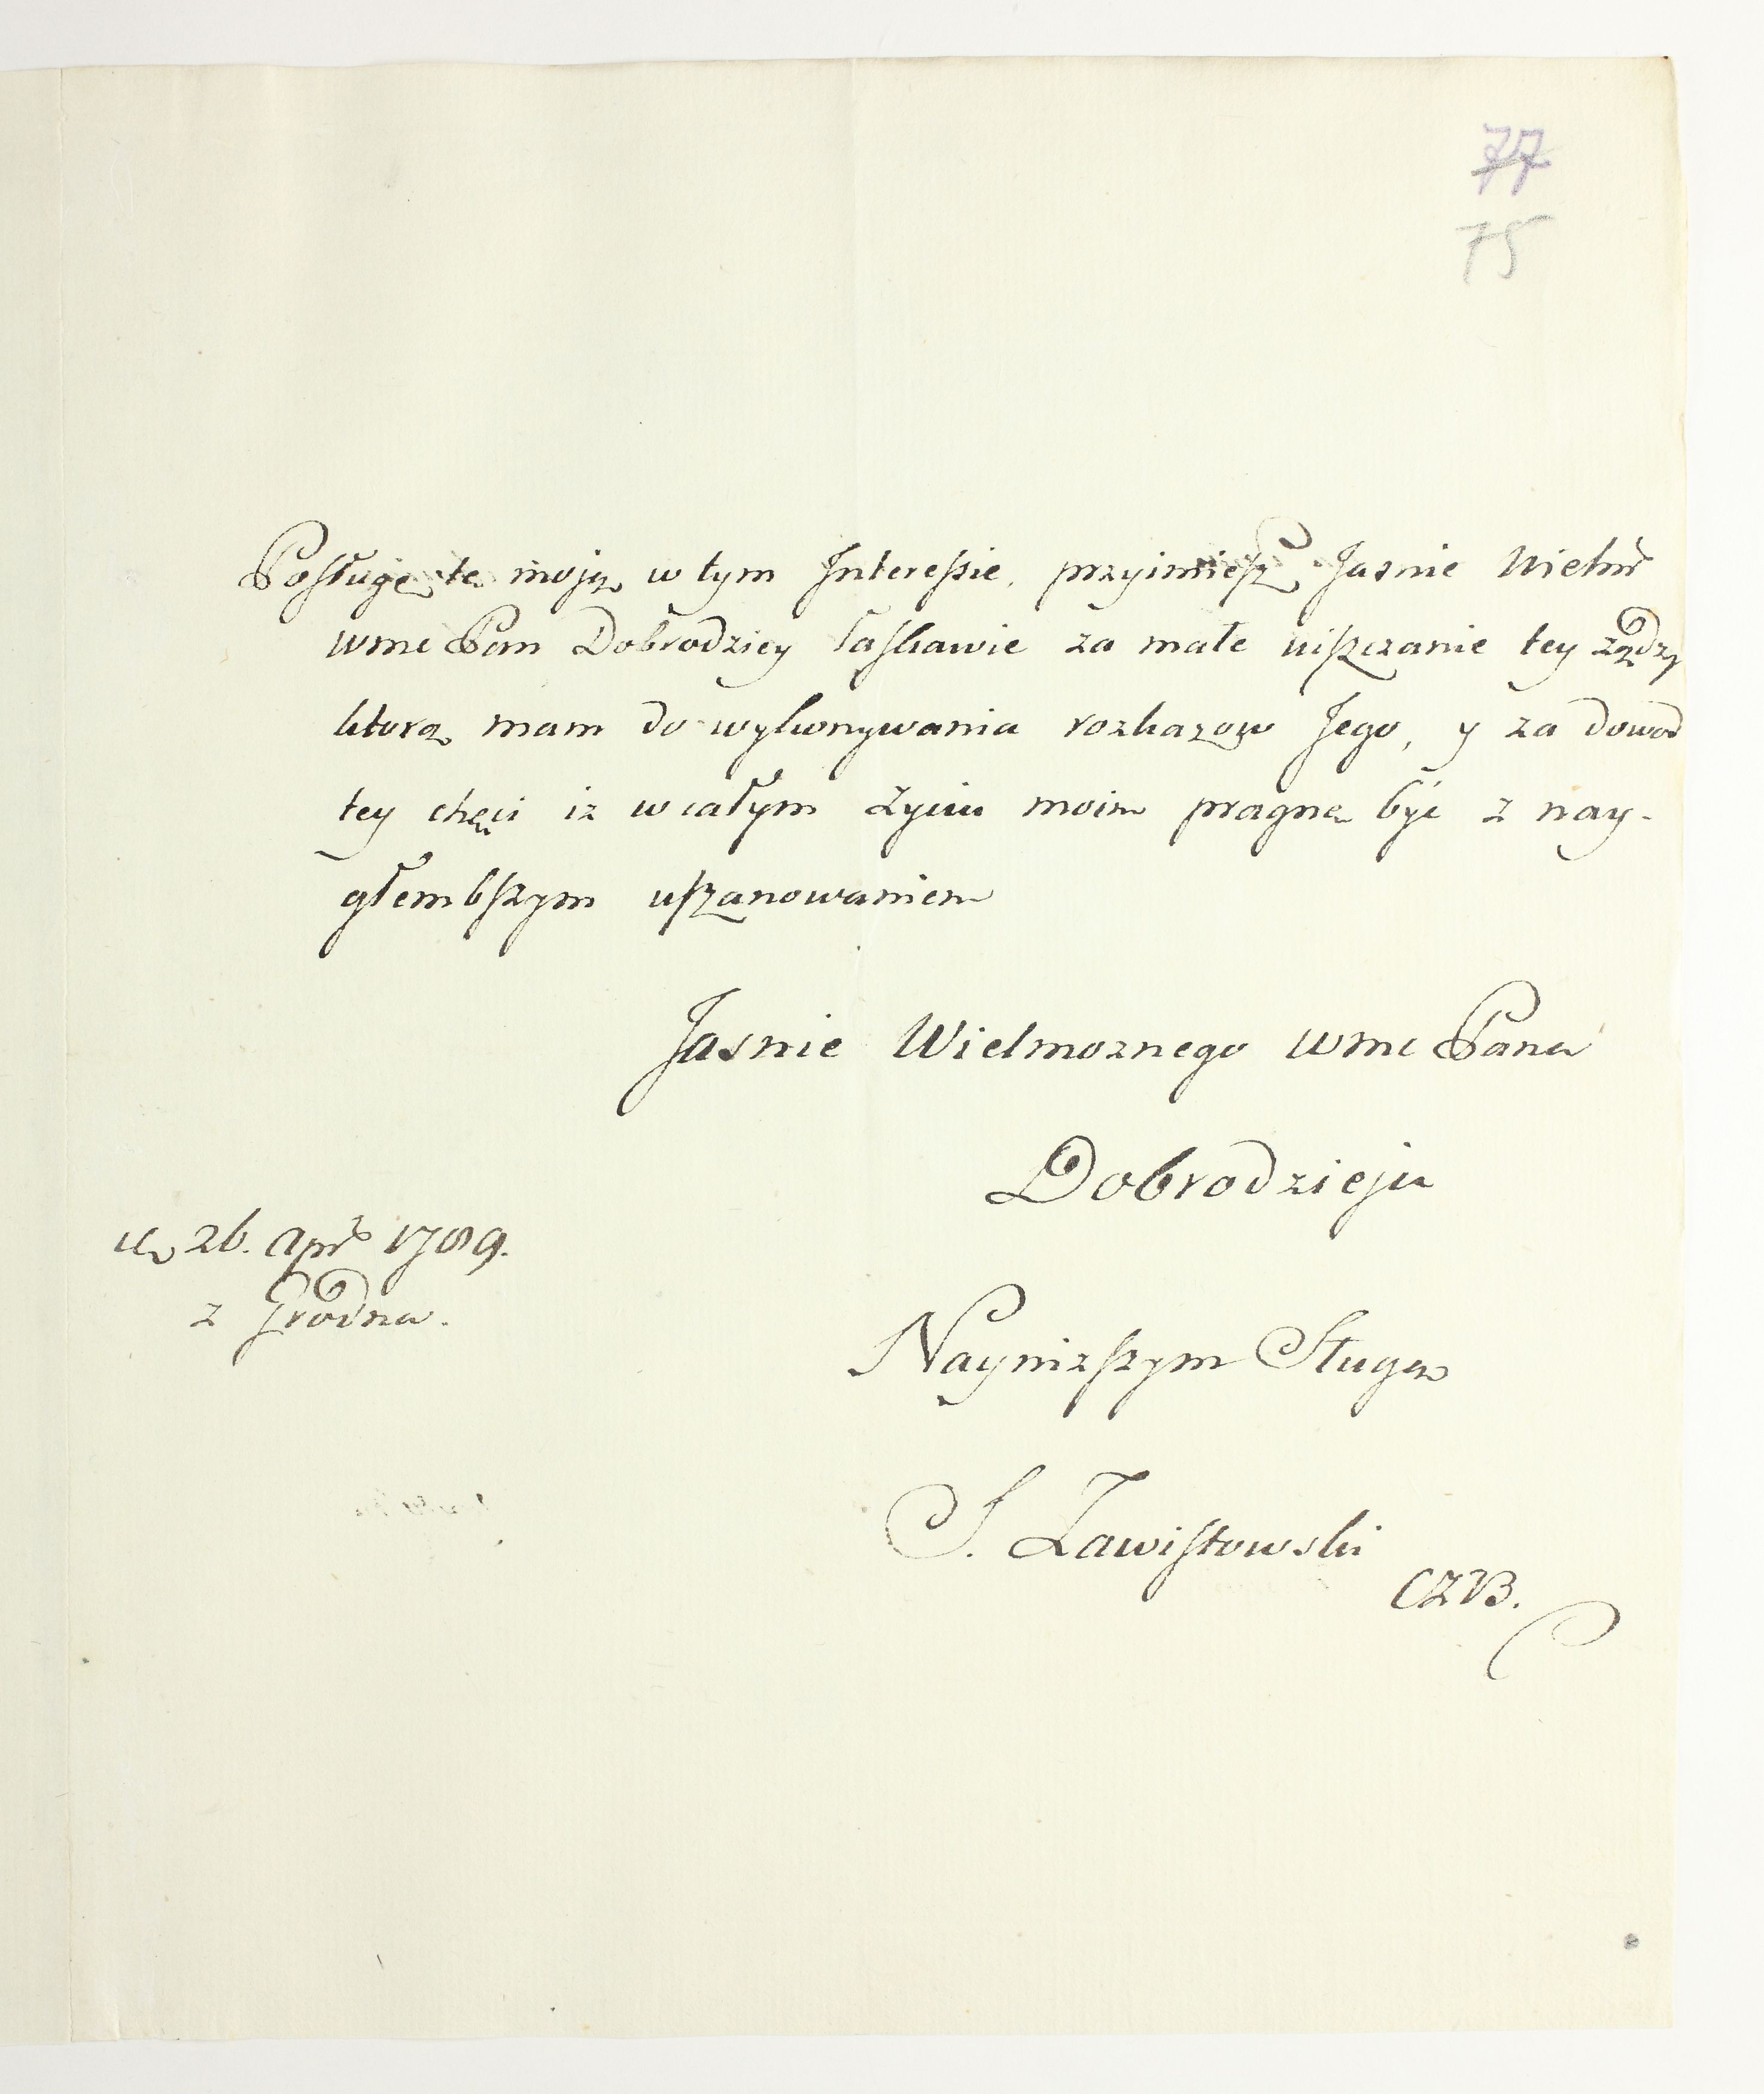 77
75
Posługę tę moją w tym Interessie, przyimiesz Jasnie Wielmˢ
wmc Pan Dobrodziey łaskawie za małe uiszczanie tey żądzy
ktorą mam do wykonywania rozkazow Jego, y za dowod
tey chęci iz w całym zyciu moim pragnę być z nay-
głembszym uszanowaniem
Jasnie Wielmoznego wmc Pana
Dobrodzieja
26. apr 1789.
z Grodna.
Naynizszym Sługą
S. Zawistowski
CZB.